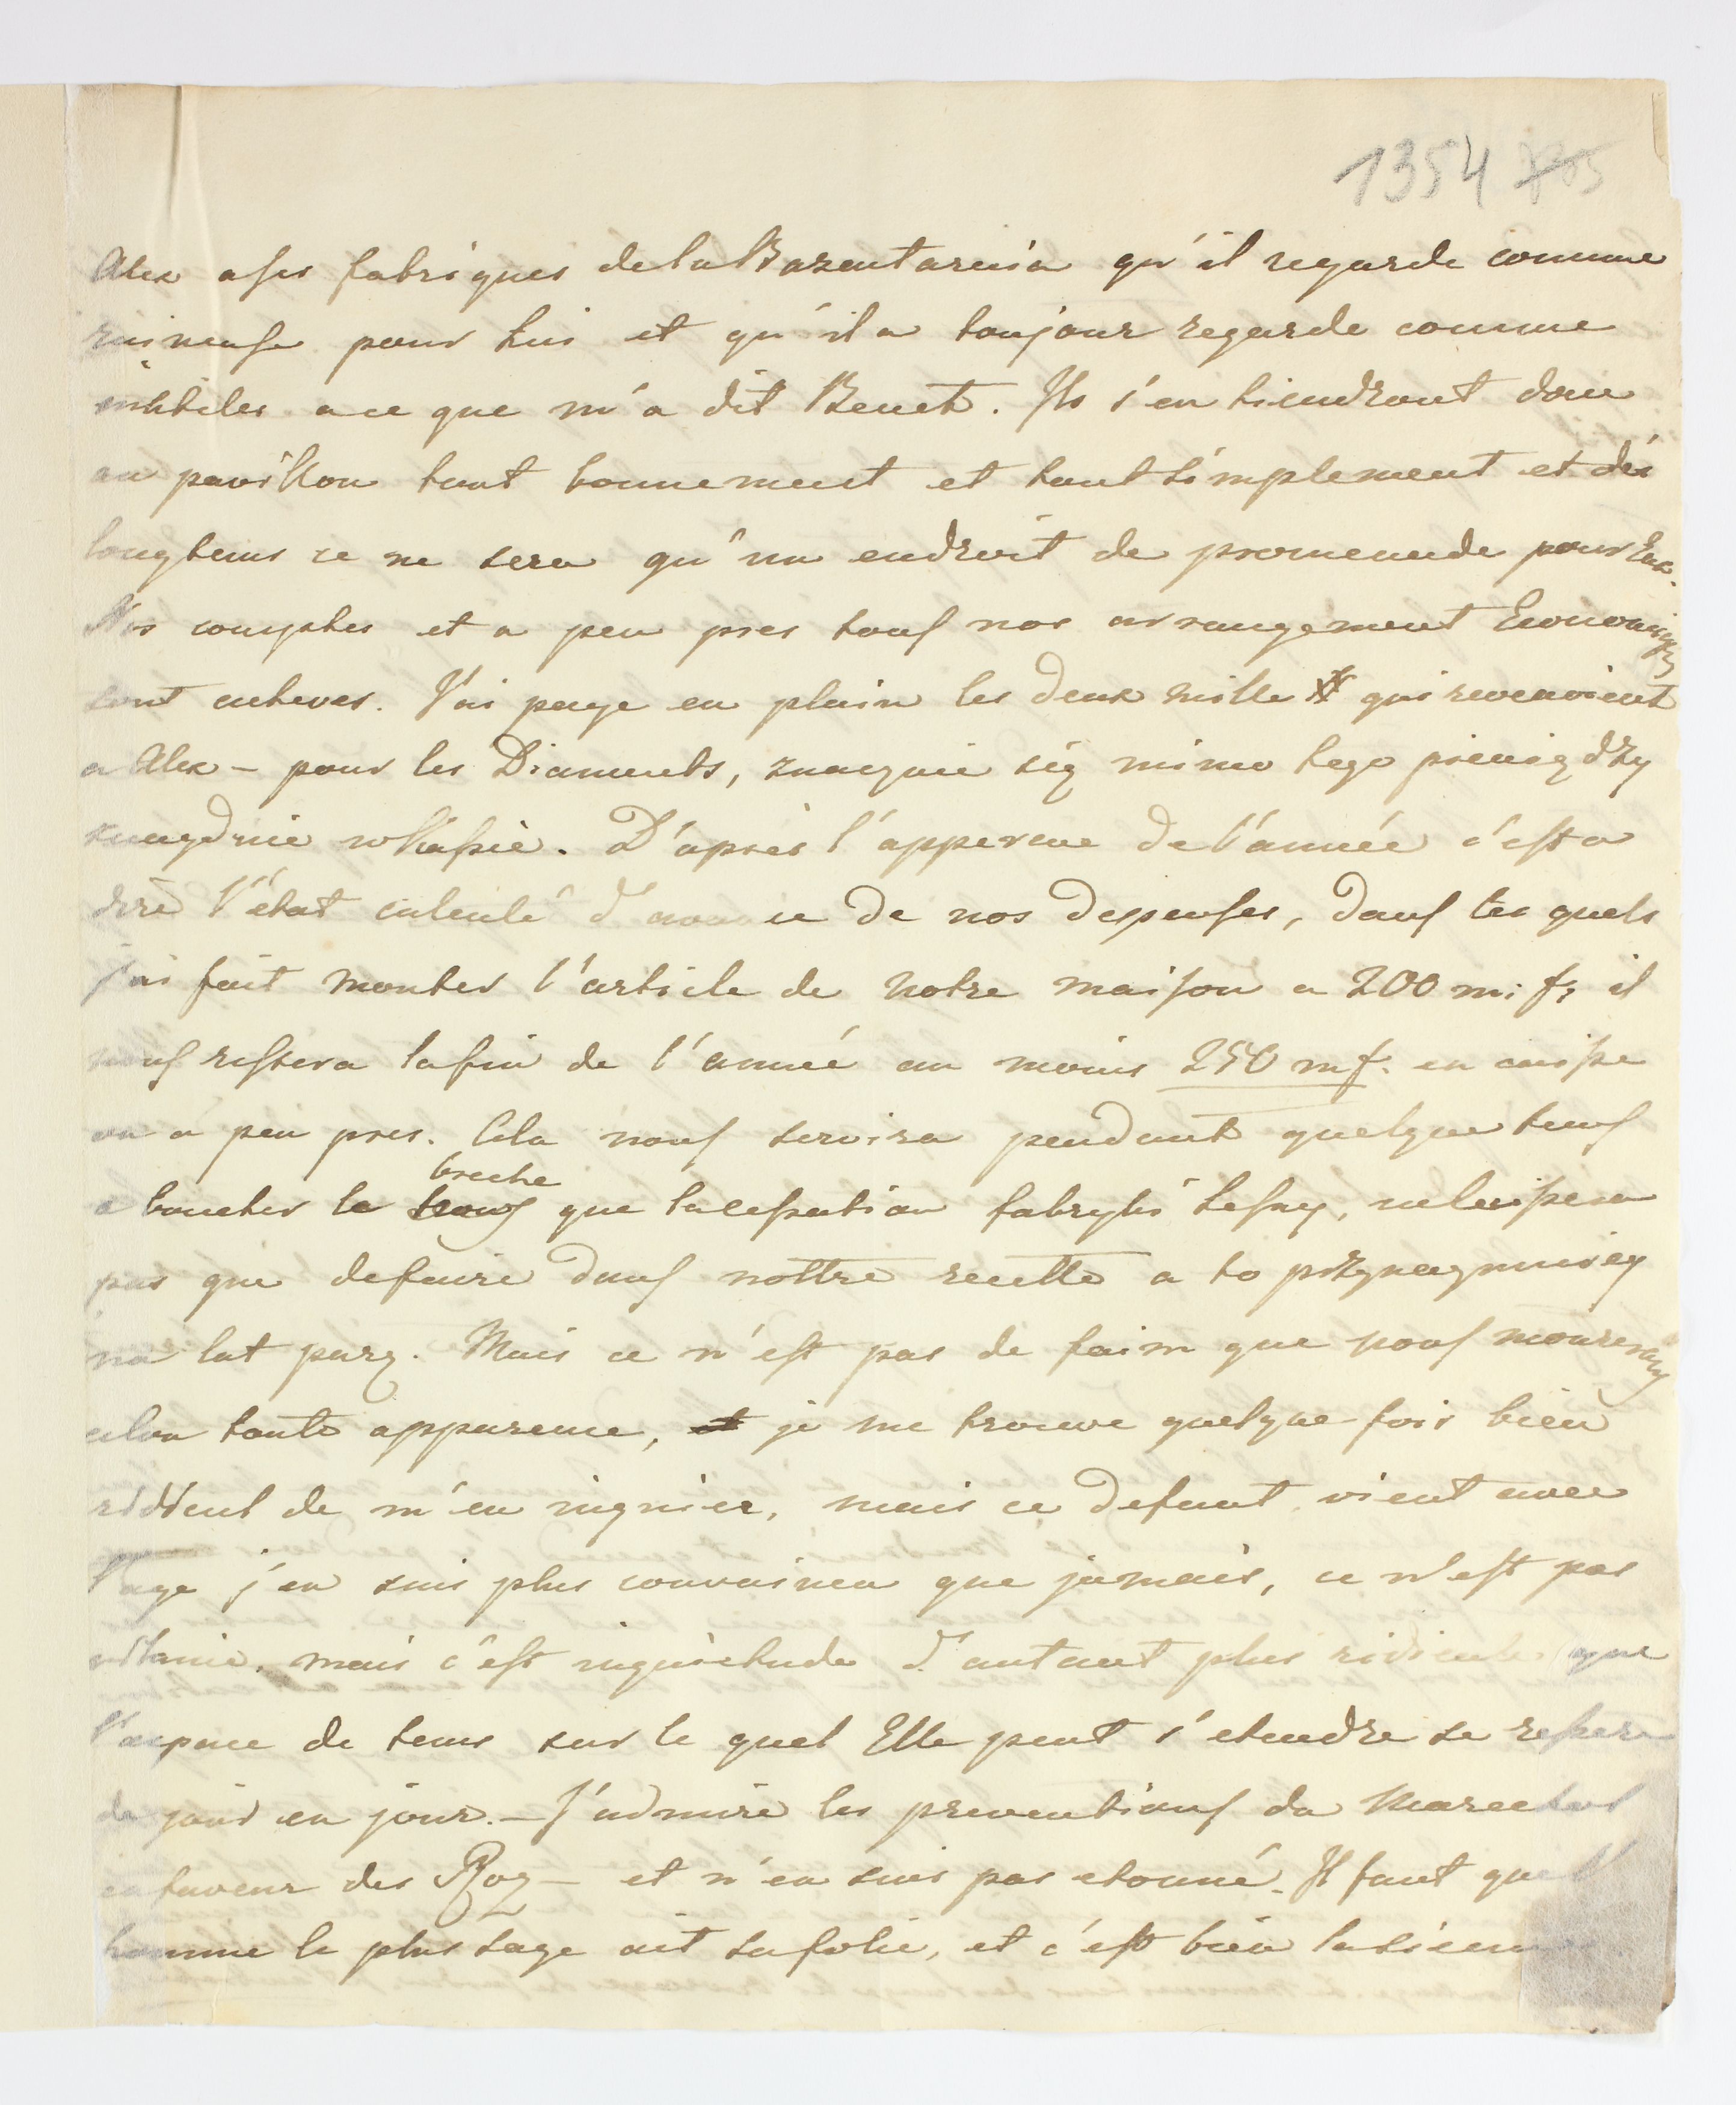 1354
Alex a ses fabriques de la Bazantarnia qu'il regarde comme
ruineuse pour lui et qu'il a toujour regarde comme
inutiles a ce que m'a dit Benet. Ils s'en tiendront donc
au pavillon tout bonnement et tout simplement et dei
longtems ce ne sera qu'un endroit de promenade pour Eux.
Nos comptes et a peu pres tous nos arrangement Economiqs
sont acheves. J'ai paye en plain les deux mille # qui revenoient
a Alex – pour les Diaments, znacznie się mimo tego pieniędzy
znaydzie w Kassie. D'apres l'appercue de l'année c'est a
dire l'état calculé d'avance de nos depenses, dans les quels
j'ai fait monter l'article de notre maison a 200 m: f; il
nous restera la fin de l'année au moins 250 mf. en caisse
ou a peu pres. Cela nous servira pendant quelque tems
a boucher la breche que la cessation fabryki Lesney, ne laissera
pas que de faire dans nottre recette a to przynaymniey
na lat parę. Mais ce n'est pas de faim que nous mourerons
selon toute apparence, je me trouve quelque fois bien
ridicul de m'en inquiier, mais ce defaut vient avec
l'age j'en suis plus convaincu que jamais, ce n'est pas
vilanie, mais c'est inquietude d'autant plus ridicule que
l'aspace de tems sur le quel Elle peut s'etendre se ressere
de jour en jour. – J'admire les preventions du Marechal
en faveur des Roz – et n'en suis pas etonné. Il faut que l'
homme le plus sage ait sa folie, et c'est bien la sienne